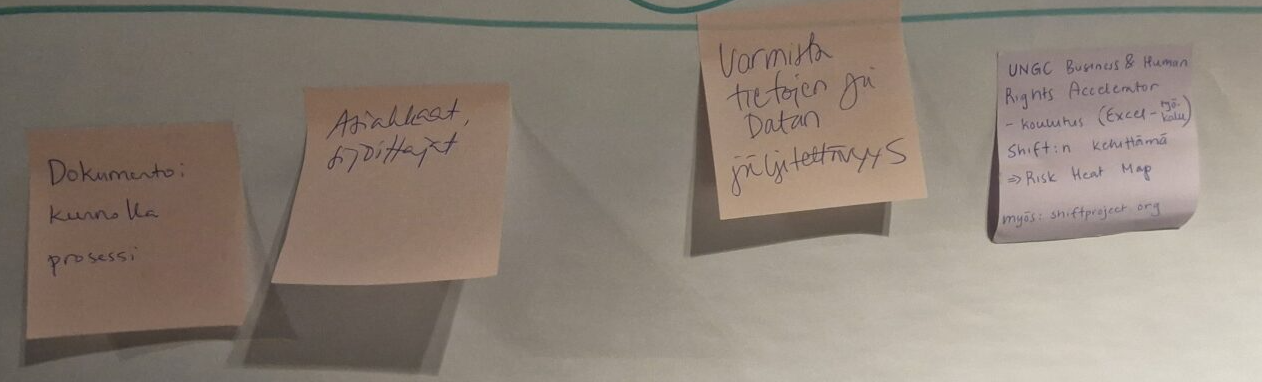 Dokumentoi
kunnolla
prosessi
Asiakkaat,
sijoittajat
Varmista
tietojen ja
Datan
jäljitettävyys
UNGC Business & Human
Rights Accelerator
- koulutus (Excel-työ-
kalu)
Shift:n kehittämä
⇒ Risk Heat Map
myös: shiftproject.org